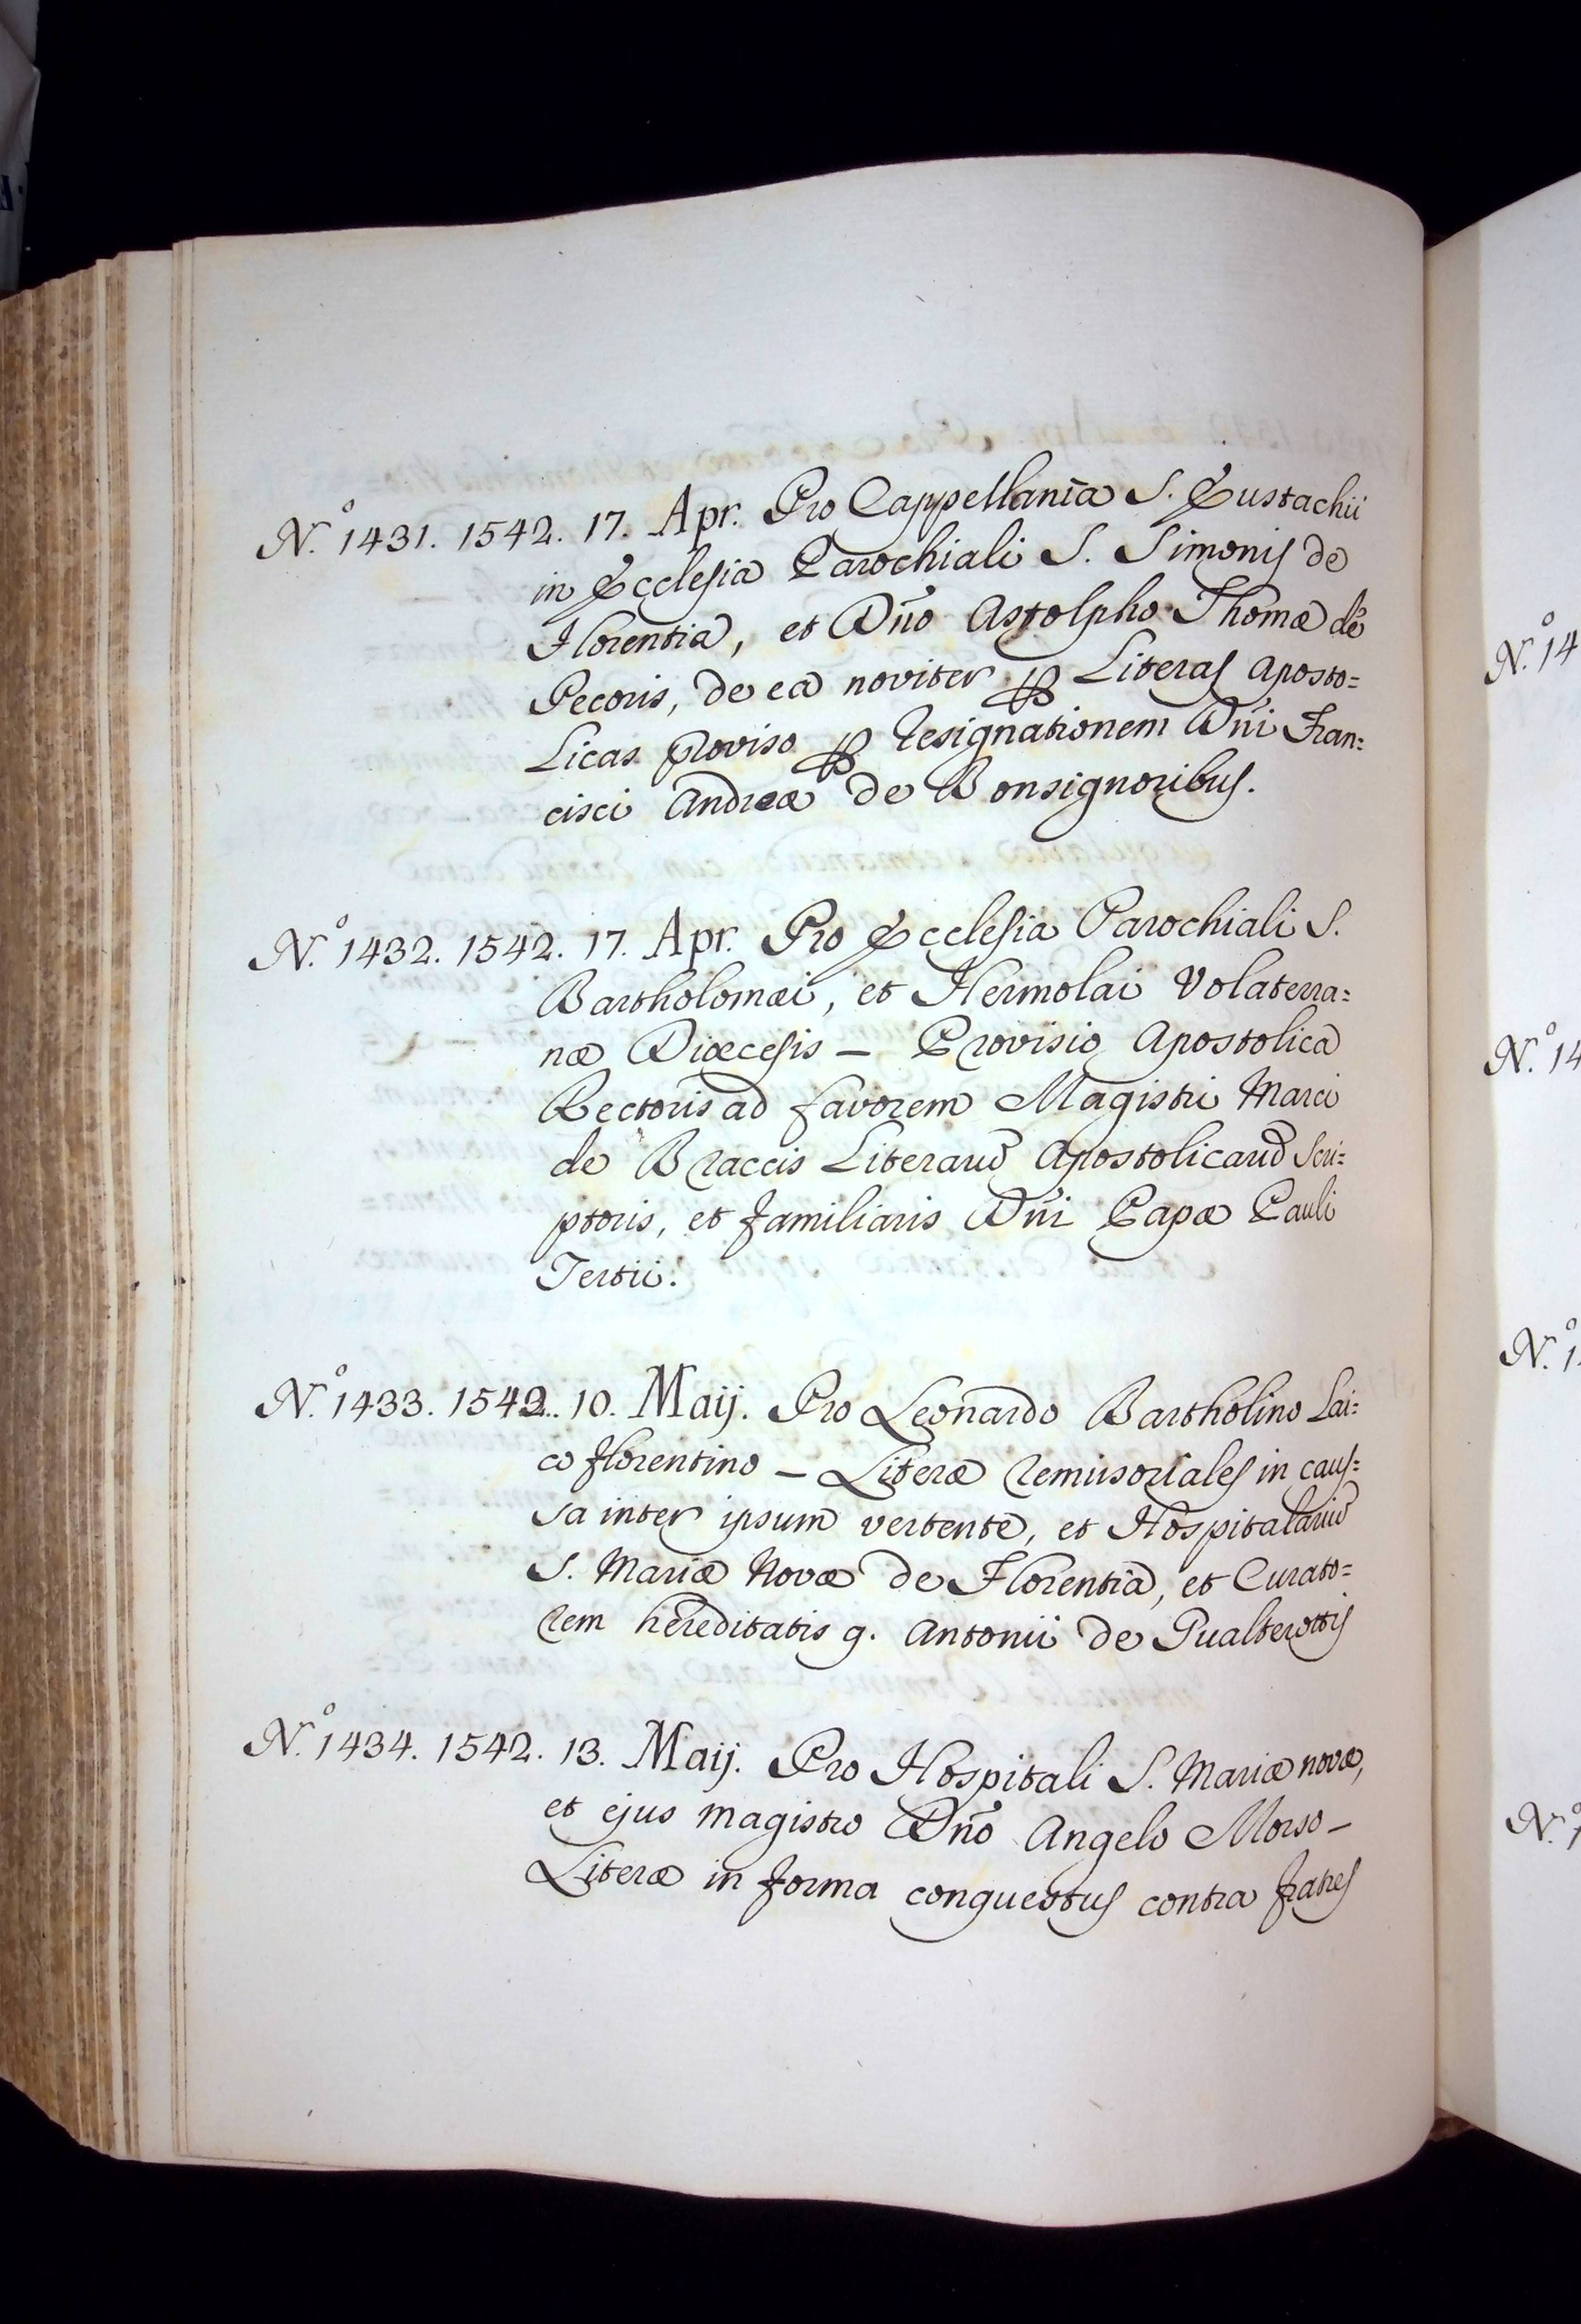 N.º 1431. 1542. 17. Apr. Pro Cappellania S. Eustachii
in Ecclesia Parochiali S. Simonis de
Florentia, et Dño Astolpho Thomæ de
Pecoris, de ea noviter ꝑ Literas Aposto=
licas proviso ꝑ resignationem Dñi Fran=
cisci Andreæ de Bonsignoribus.
N.º 1432. 1542. 17. Apr. Pro Ecclesia Parochiali S.
Bartholomæi, et Hermolai Volaterra=
næ Diœcesis – Provisio Apostolica
Rectoris ad favorem Magistri Marci
de Braccis Literarũ Apostolicarũ Scri=
ptoris, et familiaris Dñi Papæ Pauli
Tertii.
N.º 1433. 1542. 10. Maij. Pro Leonardo Bartholino Lai=
co florentino – Literæ remissoriales in caus=
sa inter ipsum vertente, et Hospitalariũ
S. Mariæ Novæ de Florentia, et Curato=
rem hereditatis q. Antonii de Gualterottis
N.º 1434. 1542. 13. Maij. Pro Hospitali S. Mariæ novæ,
et ejus magistro Dño Angelo Morso –
Literæ in forma conquestus contra fratres
N.º 14
N.º 14
N.º 1
N.º 1